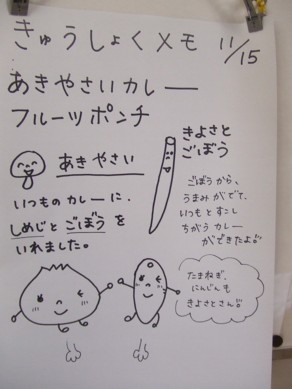 きゅうしょくメモ 11/15
あきやさいカレー
フルーツポンチ
きよさと
ごぼう
あきやさい
いつものカレーに、
しめじとごぼうを
いれました。
ごぼうから、
うまみがでて、
いつもとすこし
ちがうカレー
ができたよ!!
たまねぎ、
にんじんも
きよさとさん!!